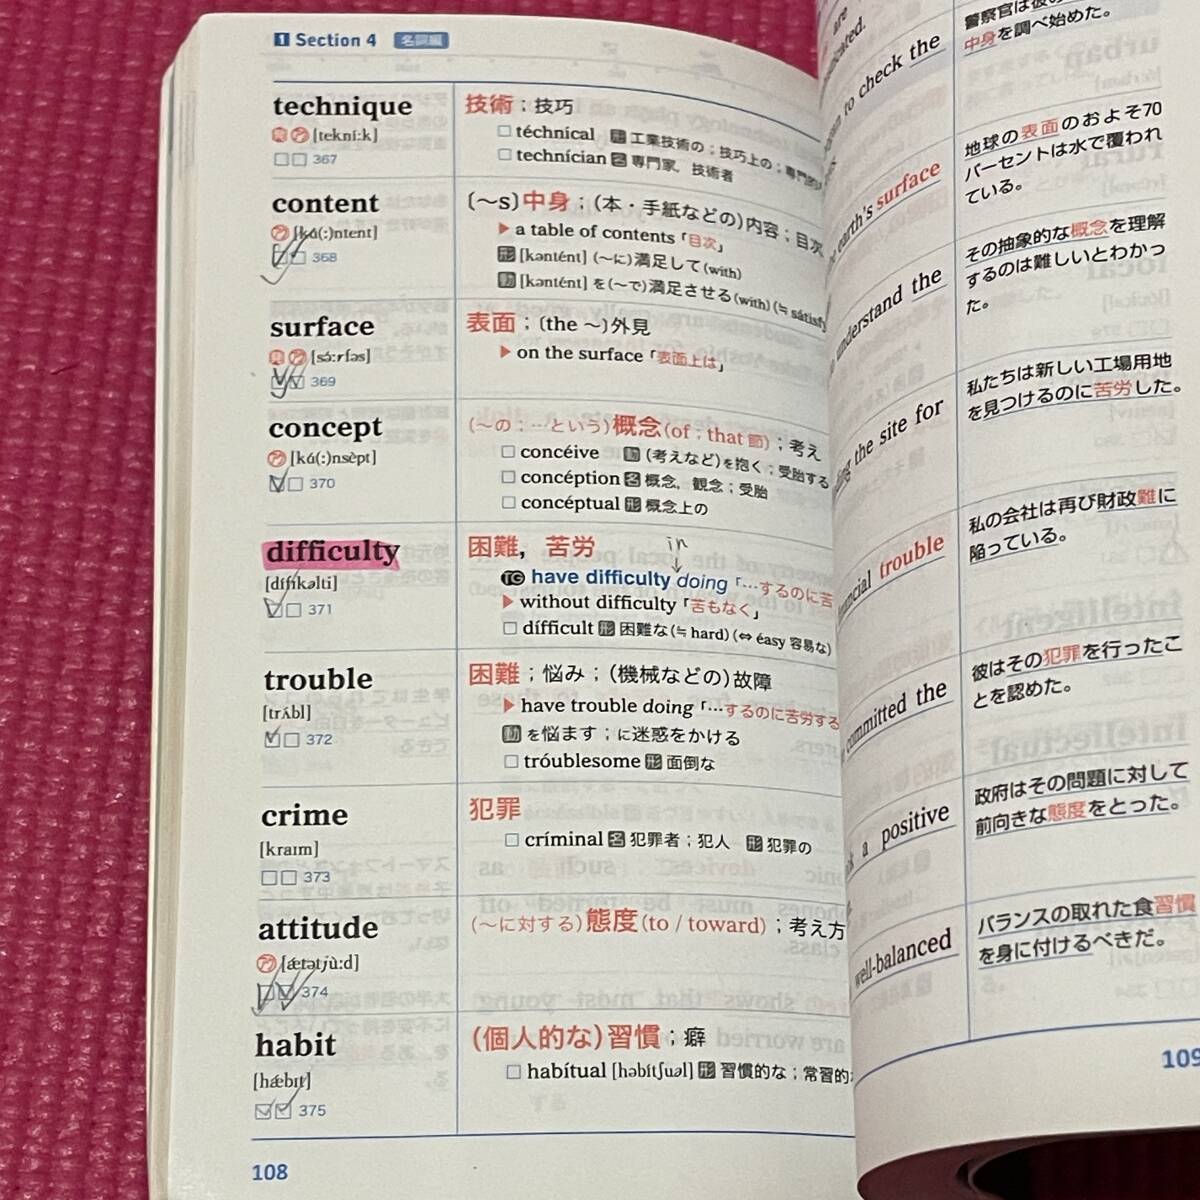 1 Section 4 名詞編
technique
発 ア [tekníːk]
367
技術；技巧
téchnical 形 工業技術の；技巧上の；専門的
technícian 名 専門家，技術者
content
ア [ká(ː)ntent]
368
(～s)中身；(本・手紙などの)内容；目次
▶ a table of contents「目次」
形 [kəntént] (～に)満足して(with)
動 [kəntént] を(～で)満足させる(with)(≒ sátisfy
surface
発 ア [sə́ːrfəs]
369
表面；(the ～)外見
▶ on the surface「表面上は」
concept
ア [ká(ː)nsèpt]
370
(～の；…という)概念(of；that 節)；考え
concéive 動 (考えなど)を抱く；受胎する
concéption 名 概念，観念；受胎
concéptual 形 概念上の
difficulty
[dífɪkəlti]
371
困難，苦労
in
TG have difficulty doing「…するのに苦
▶ without difficulty「苦もなく」
dífficult 形 困難な(≒ hard)(⇔ éasy 容易な)
trouble
[trʌ́bl]
372
困難；悩み；(機械などの)故障
▶ have trouble doing「…するのに苦労する
動 を悩ます；に迷惑をかける
tróublesome 形 面倒な
crime
[kraɪm]
373
犯罪
críminal 名 犯罪者；犯人 形 犯罪の
attitude
ア [ǽtətjùːd]
374
(～に対する)態度(to / toward)；考え方
habit
[hǽbɪt]
375
(個人的な)習慣；癖
habítual [həbítʃuəl] 形 習慣的な；常習的
108
are
to check the
中身を調べ始めた。
earth's surface
地球の表面のおよそ70
パーセントは水で覆われ
ている。
understand the
その抽象的な概念を理解
するのは難しいとわかっ
た。
the site for
私たちは新しい工場用地
を見つけるのに苦労した。
trouble
私の会社は再び財政難に
陥っている。
committed the
彼はその犯罪を行ったこ
とを認めた。
a positive
政府はその問題に対して
前向きな態度をとった。
well-balanced
バランスの取れた食習慣
を身に付けるべきだ。
109